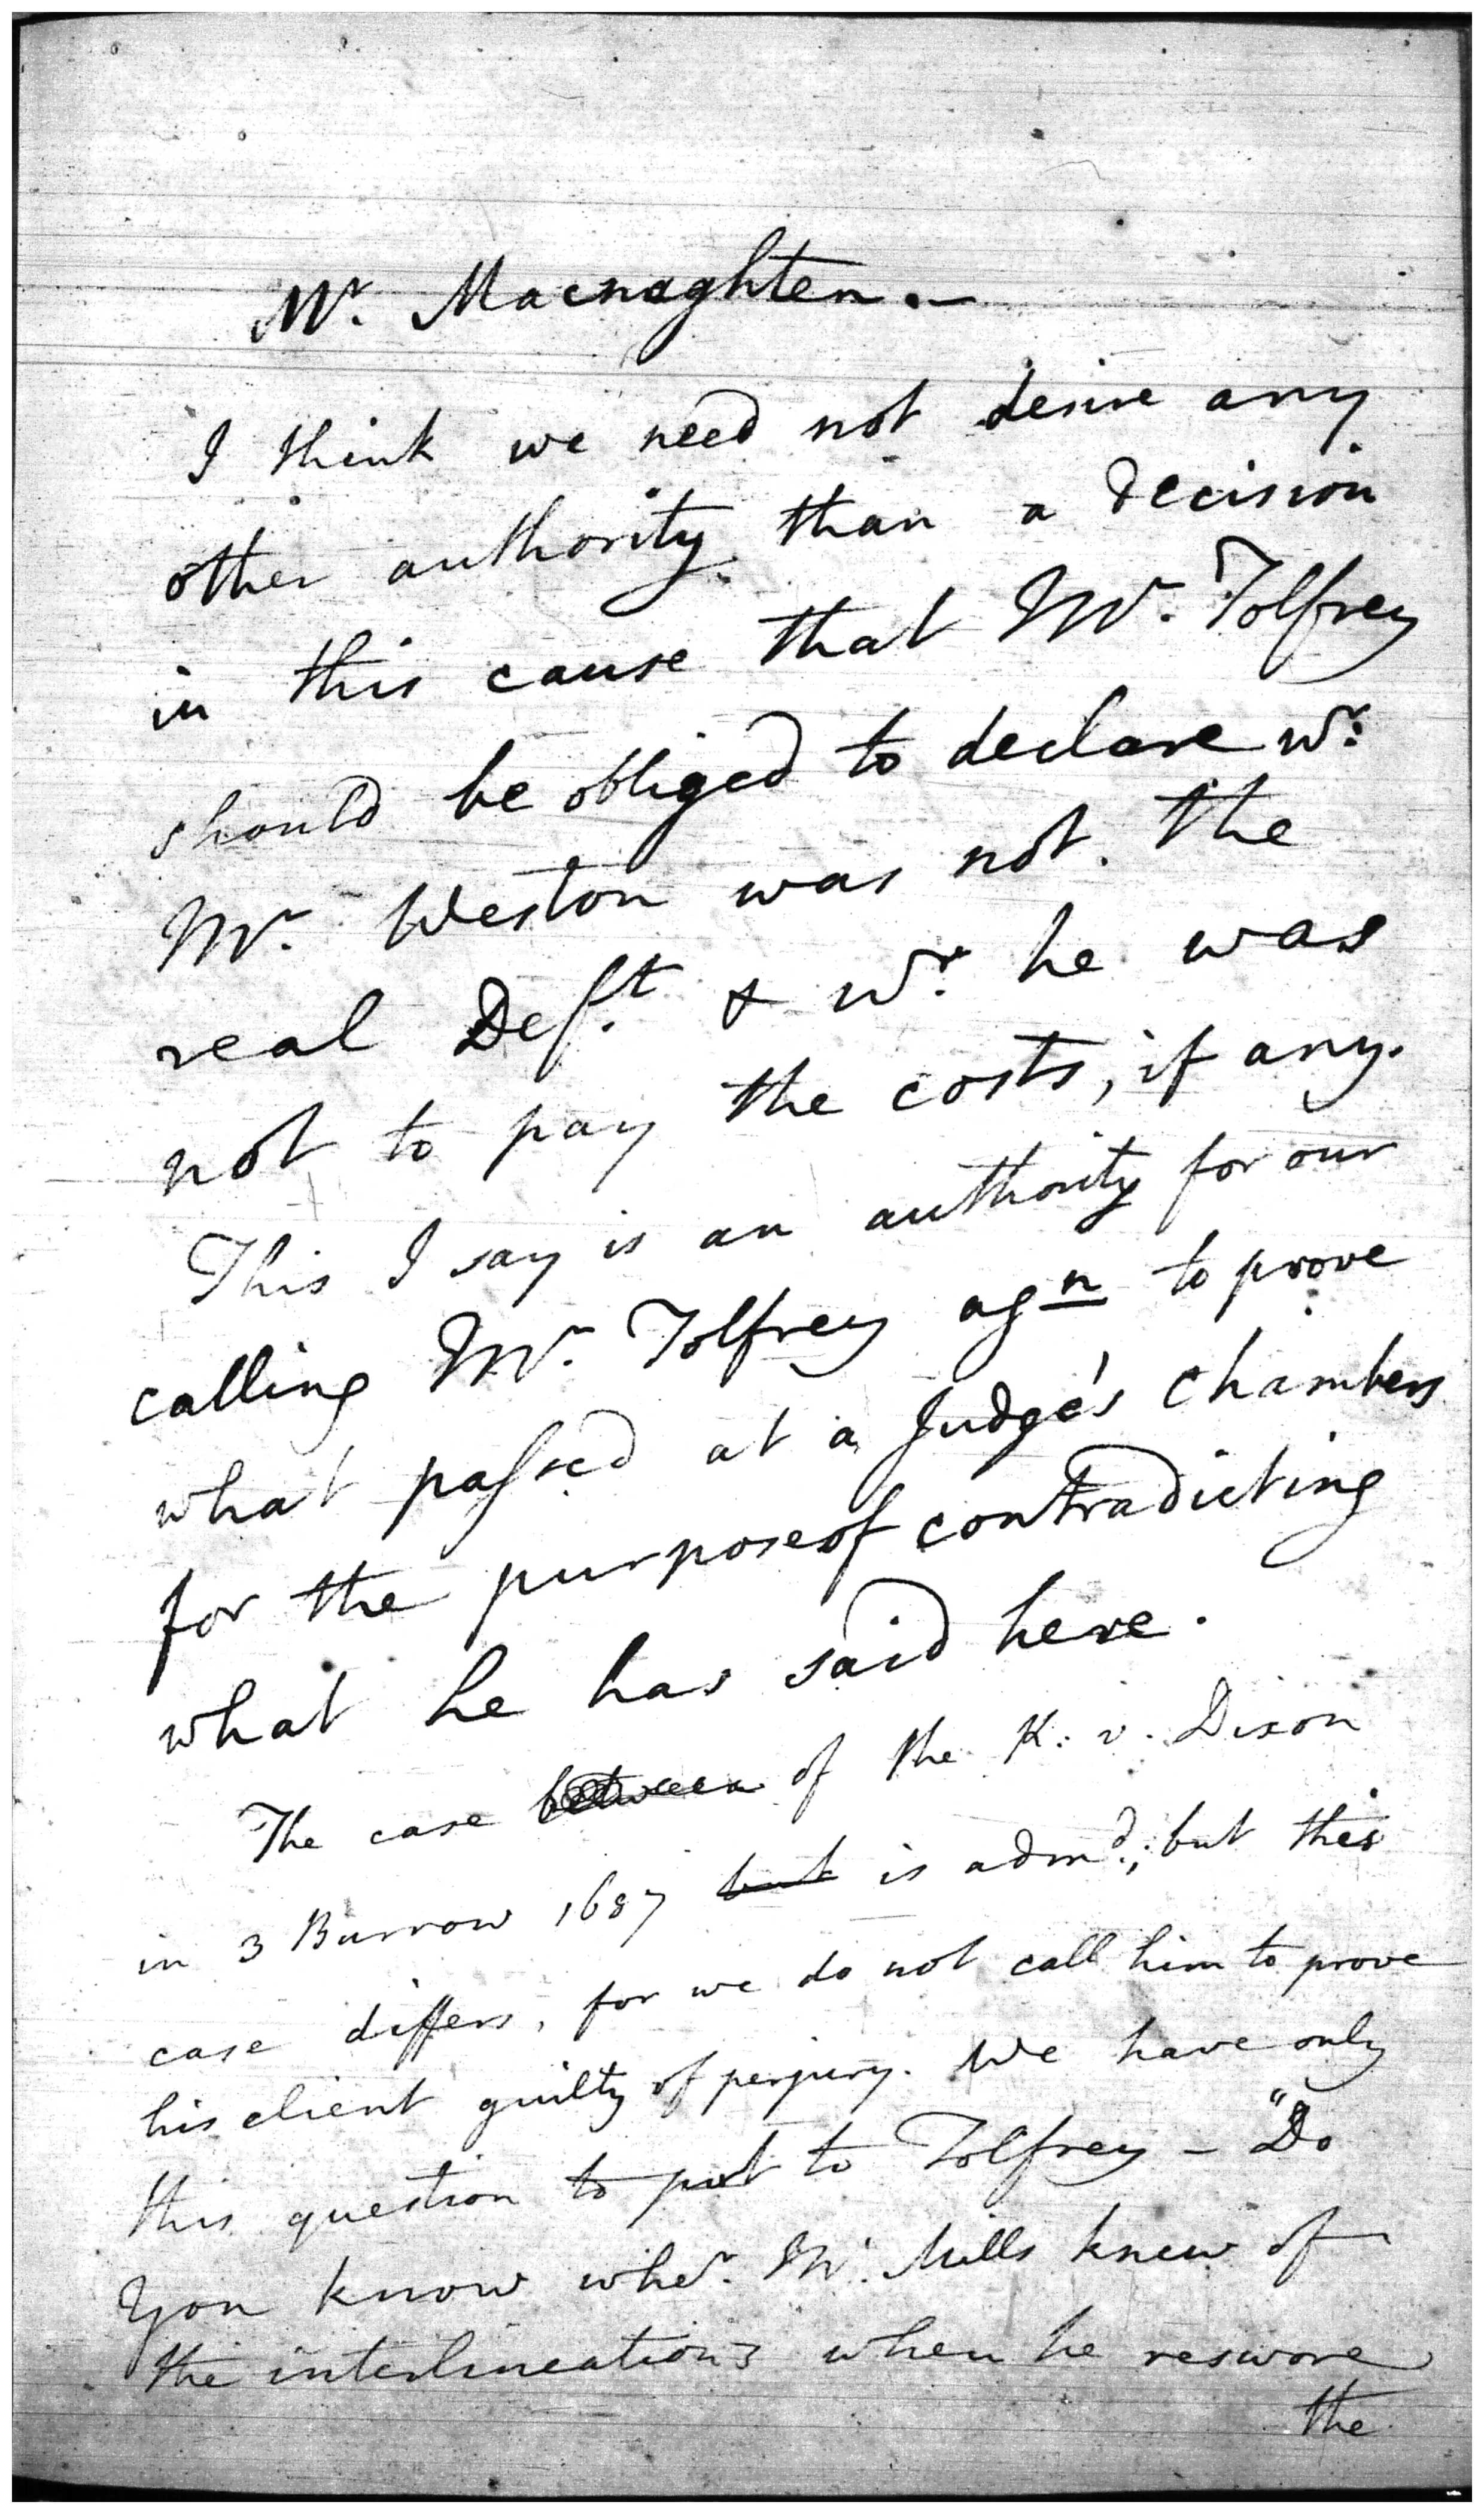 Mr. Macnaghten.—
I think we need not desire any
other authority than a decision
in this cause that Mr. Tolfrey
should be obliged to declare wr.
Mr. Weston was not the
real Deft. & wr. he was
not to pay the costs, if any.
This I say is an authority for our
calling Mr. Tolfrey agn to prove
what passed at a Judge's Chambers
for the purpose of contradicting
what he has said here.
The case between of the K: v. Dixon
in 3 Burrow 1687 but is admd.; but this
case differs, for we do not call him to prove
his client guilty of perjury. We have only
this question to put to Tolfrey – "Do
you know wher. Mr. Mills knew of
the interlineations when he reswore
the